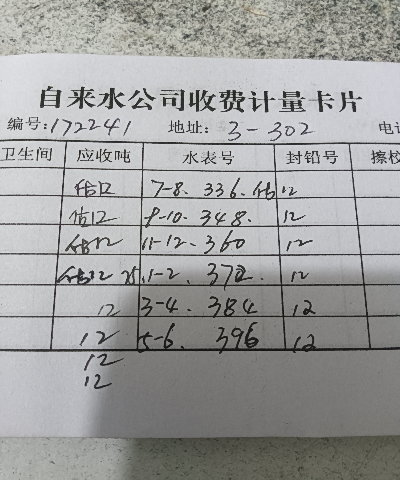 自来水公司收费计量卡片
编号:172241 地址: 3-302 电
卫生间 应收吨 水表号 封铅号 擦
估12 7-8. 336. 估 12
估12 9-10. 348. 12
估12 11-12. 360 12
估12 25.1-2. 372. 12
12 3-4. 384 12
12 5-6. 396 12
12
12